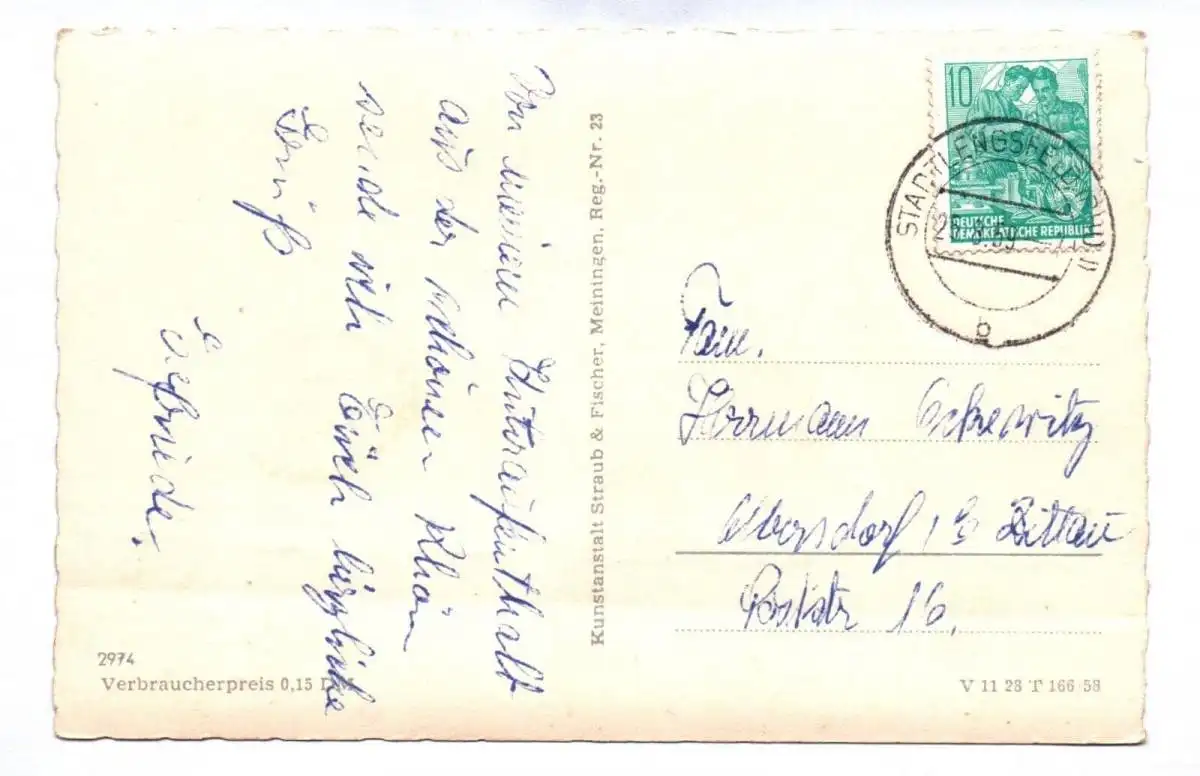 Von meinem Kuraufenthalt
aus der schönen Rhön
sende ich Euch herzliche
Grüße
Elfriede.
Kunstanstalt Straub & Fischer, Meiningen, Reg.-Nr. 23
10
DEUTSCHE
DEMOKRATISCHE REPUBLIK
STADTLENGSFELD (RHÖN)
b
Fam.
Herrmann
Olbersdorf, b Zittau
Poststr 16.
2974
Verbraucherpreis 0,15
V 11 28 T 166 58